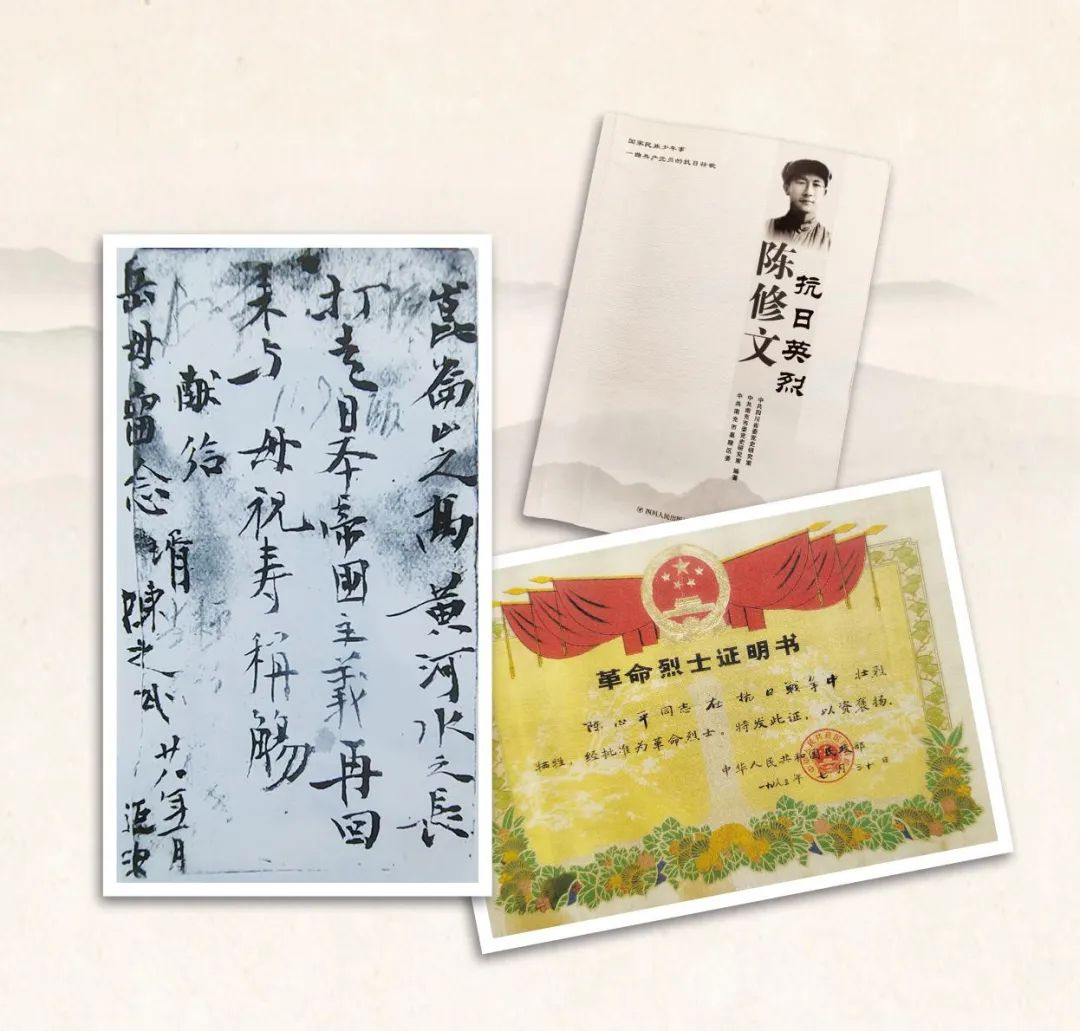 崑崙山之高黄河水之長
打走日本帝國主義再回
来与母祝寿稱觴
献给
岳母畱念 婿陳 廿八年 月
国家民族少年事
一曲共产党员的抗日壮歌
抗日英烈
陈修文
中共四川省委党史研究室
中共南充市委党史研究室
中共南充市嘉陵区委 编著
四川人民出版
革命烈士证明书
陈心平同志在抗日戰争中壮烈
牺牲，经批准为革命烈士。特发此证，以资褒扬。
中华人民共和国民政部
一九八三年七月三十日